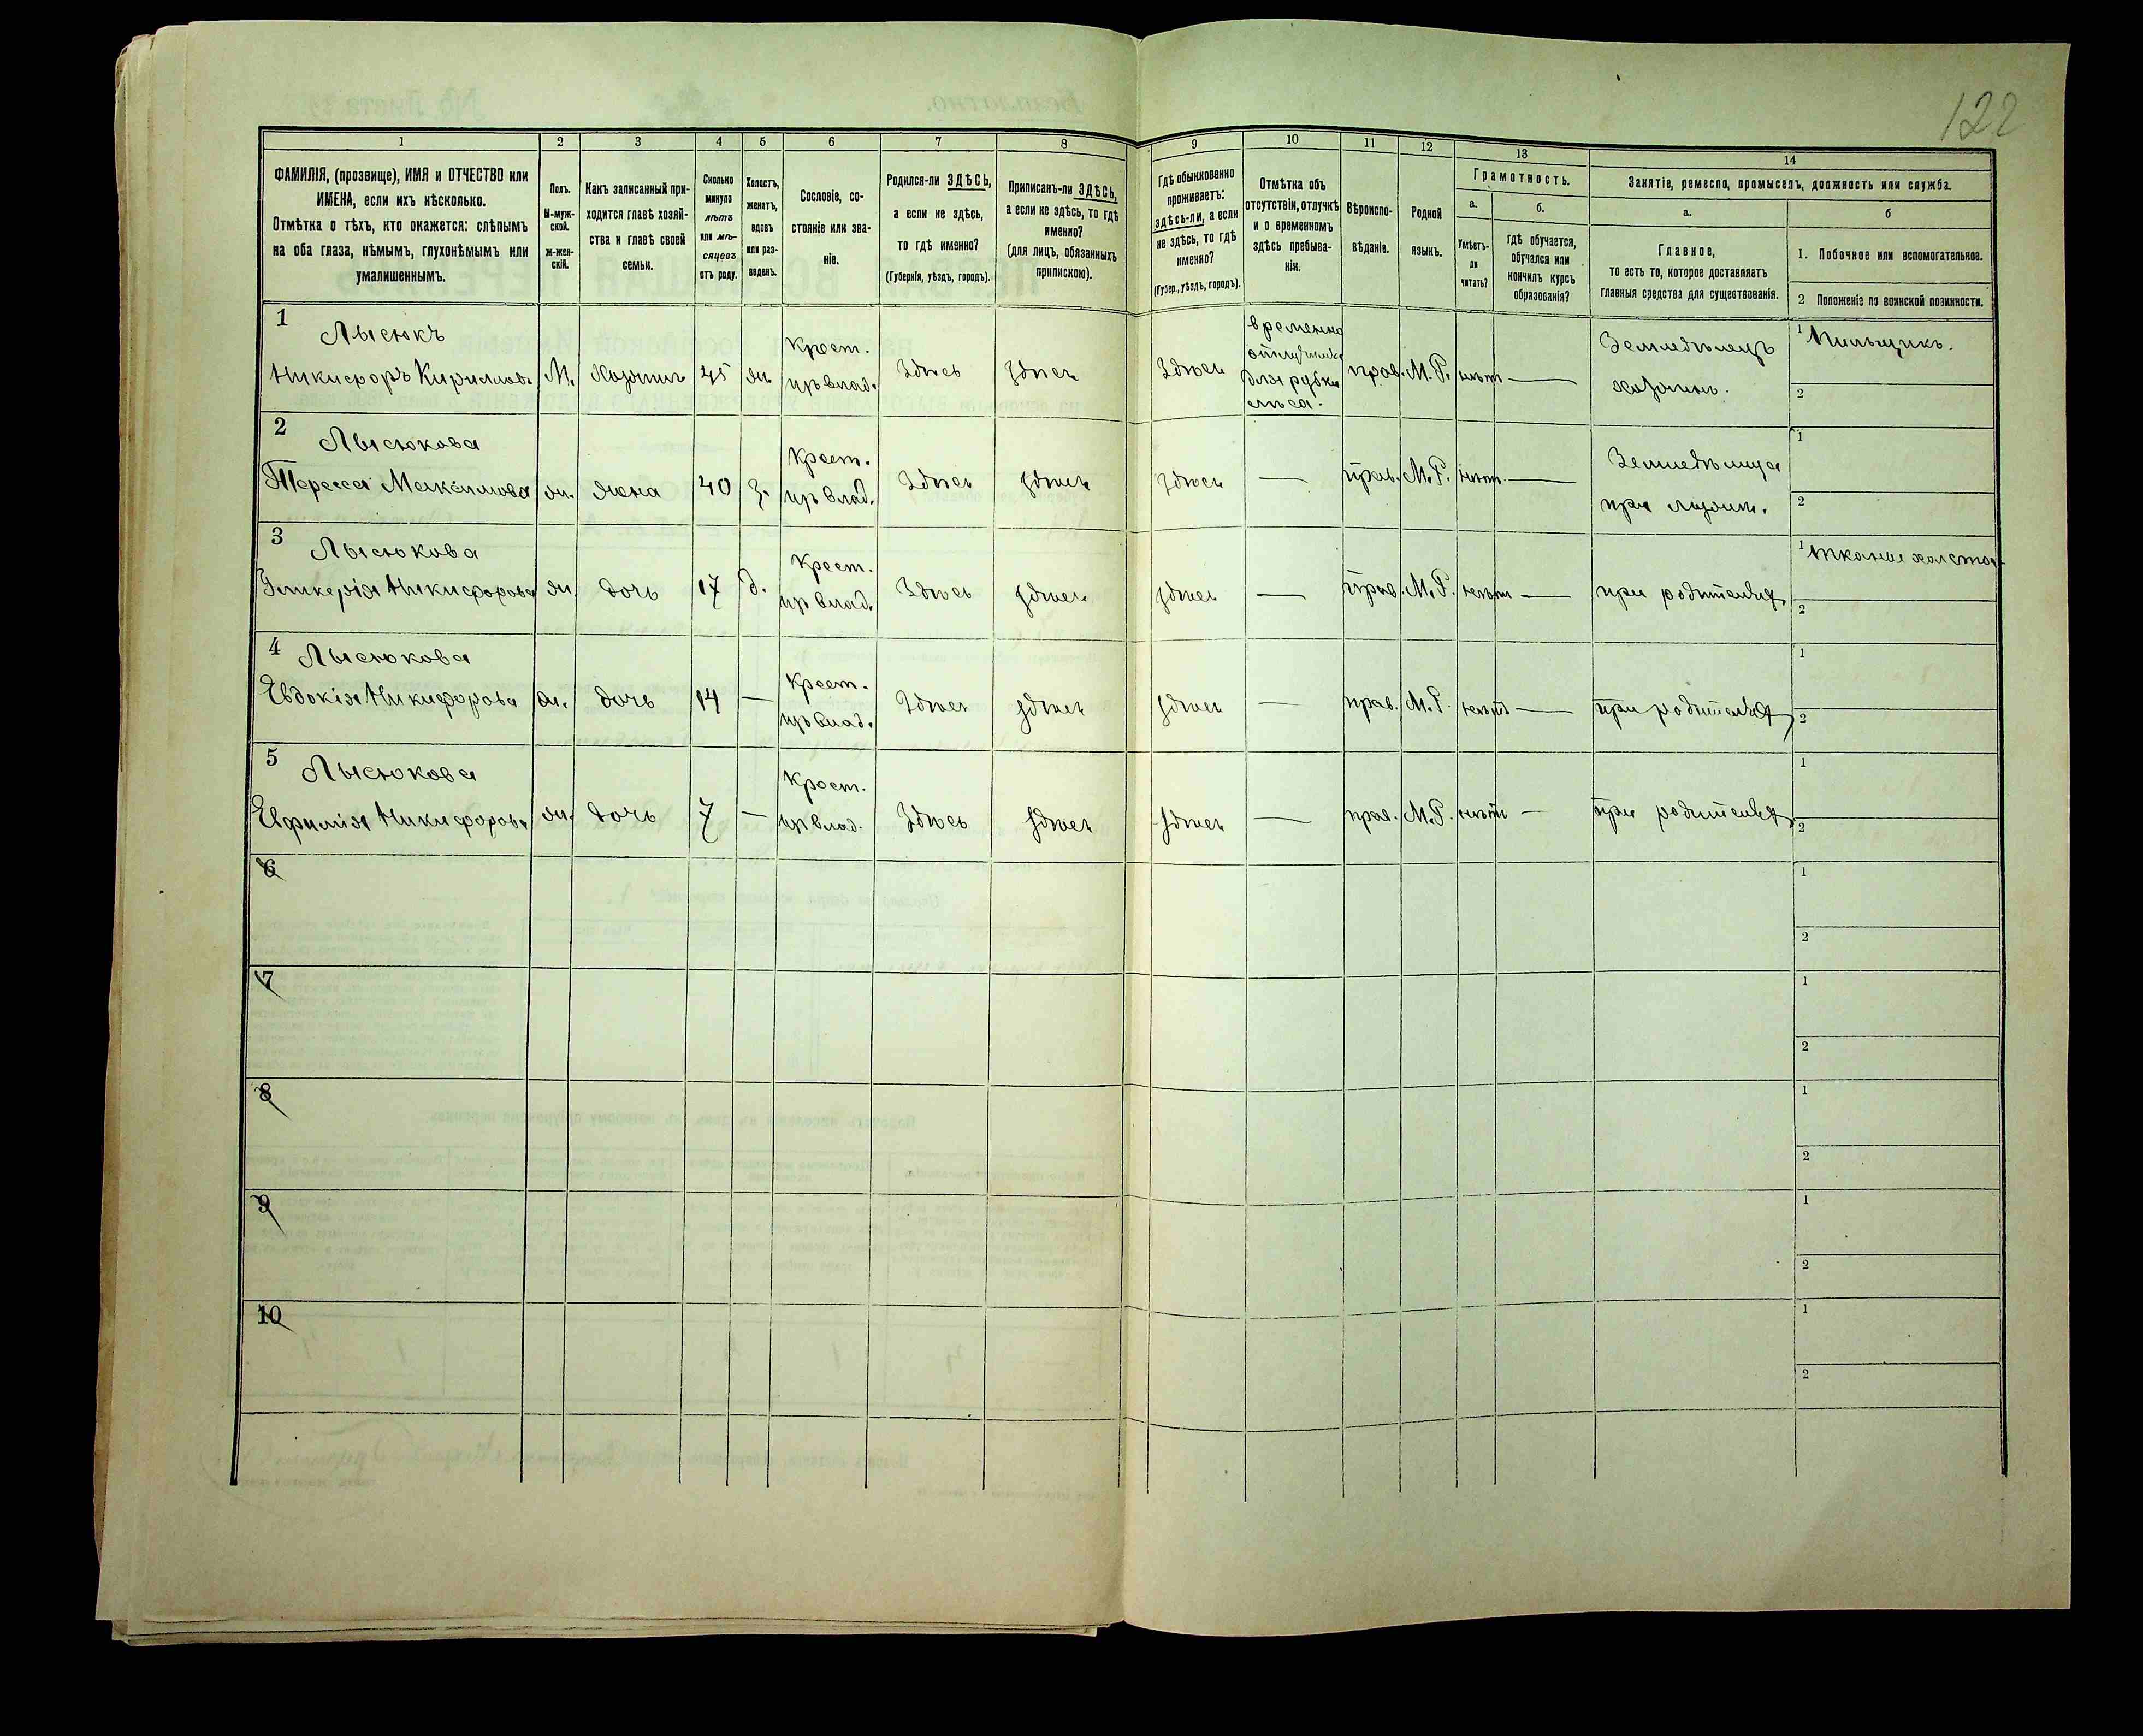 122
1 2 3 4 5 6 7 8 9 10 11 12 13 14
ФАМИЛІЯ, (прозвище), ИМЯ и ОТЧЕСТВО или
ИМЕНА, если ихъ нѣсколько.
Отмѣтка о тѣхъ, кто окажется: слѣпымъ
на оба глаза, нѣмымъ, глухонѣмымъ или
умалишеннымъ.
Полъ.
М-муж-
ской.
Ж-жен-
скій.
Какъ записанный при-
ходится главѣ хозяй-
ства и главѣ своей
семьи.
Сколько
минуло
лѣтъ
или мѣ-
сяцевъ
отъ роду.
Холостъ,
женатъ,
вдовъ
или раз-
веденъ.
Сословіе, со-
стояніе или зва-
ніе.
Родился-ли ЗДѢСЬ,
а если не здѣсь,
то гдѣ именно?
(Губернія, уѣздъ, городъ).
Приписанъ-ли ЗДѢСЬ,
а если не здѣсь, то гдѣ
именно?
(для лицъ, обязанныхъ
припискою).
Гдѣ обыкновенно
проживаетъ:
здѣсь-ли, а если
не здѣсь, то гдѣ
именно?
(Губер., уѣздъ, городъ).
Отмѣтка объ
отсутствіи, отлучкѣ
и о временномъ
здѣсь пребыва-
ніи.
Вѣроиспо-
вѣданіе.
Родной
языкъ.
Грамотность.
а.
Умѣетъ-
ли
читать?
б.
гдѣ обучается,
обучался или
кончилъ курсъ
образованія?
Занятіе, ремесло, промыселъ, должность или служба.
а.
Главное,
то есть то, которое доставляетъ
главныя средства для существованія.
б
1. Побочное или вспомогательное.
2 Положеніе по воинской повинности.
1 Лысюкъ
Никифоръ Кириллов. М. Хозяинъ 45 ж. Крест.
из влад. Здѣсь Здѣсь Здѣсь временно
отлучился
для рубки
лѣса. прав. М.Р. нѣтъ — Земледѣлецъ
хозяинъ. 1 Пильщикъ.
2
2 Лысюкова
Тересса Максимова ж. жена 40 з. Крест.
из влад. Здѣсь здѣсь здѣсь — прав. М.Р. нѣтъ — Земледѣлица
при 1
2
3 Лысюкова
Гликерія Никифорова ж. дочь 17 д. Крест.
из влад. Здѣсь здѣсь здѣсь — прав. М.Р. нѣтъ — при родителях 1 Тканіе холста
2
4 Лысюкова
Евдокія Никифорова ж. дочь 14 — Крест.
из влад. Здѣсь здѣсь здѣсь — прав. М.Р. нѣтъ — при родителях 1
2
5 Лысюкова
Евфимія Никифорова ж. дочь 7 — Крест.
из влад. Здѣсь здѣсь здѣсь — прав. М.Р. нѣтъ — при родителях 1
2
6 1
2
7 1
2
8 1
2
9 1
2
10 1
2